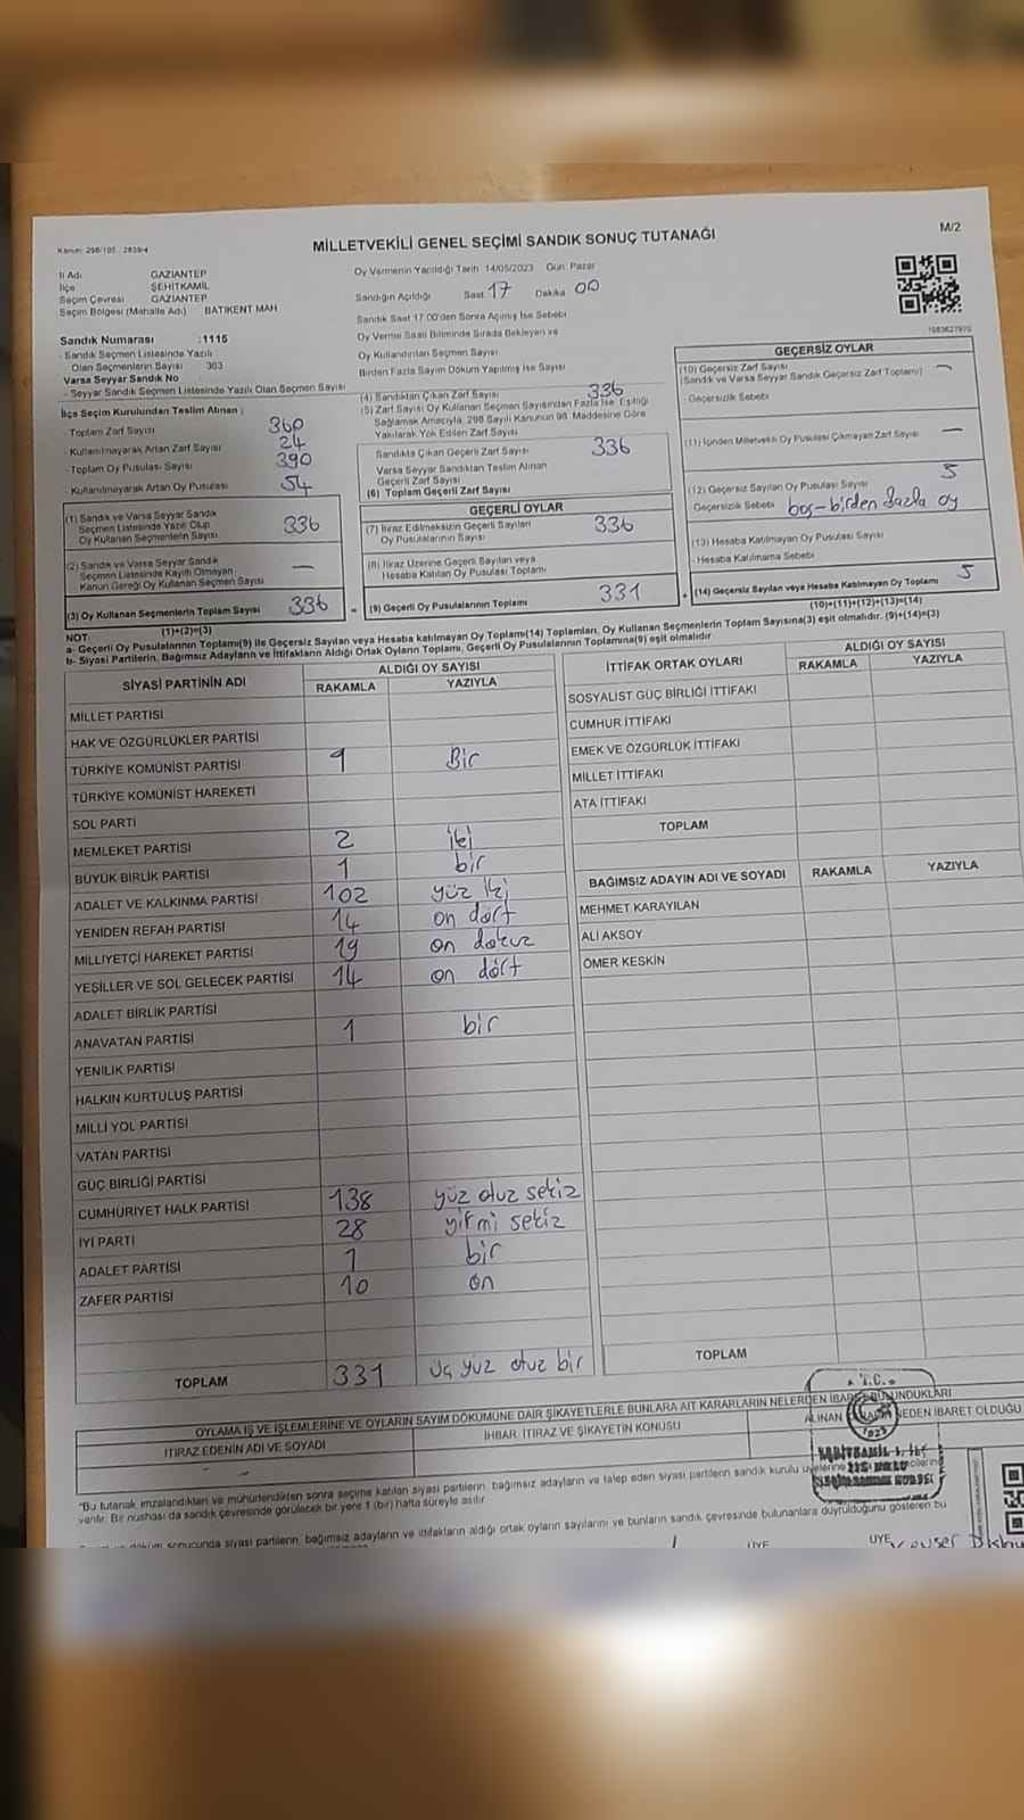 Kanun: 298/105 - 2839/4
MİLLETVEKİLİ GENEL SEÇİMİ SANDIK SONUÇ TUTANAĞI
M/2
İl Adı GAZİANTEP
İlçe ŞEHİTKAMİL
Seçim Çevresi GAZİANTEP
Seçim Bölgesi (Mahalle Adı) BATIKENT MAH
Oy Vermenin Yapıldığı Tarih 14/05/2023 Gün: Pazar
Sandığın Açıldığı Saat 17 Dakika 00
Sandık Saat 17.00'den Sonra Açılmış İse Sebebi
Oy Verme Saati Bitiminde Sırada Bekleyen ve
Oy Kullandırılan Seçmen Sayısı
Birden Fazla Sayım Döküm Yapılmış İse Sayısı
Sandık Numarası :1115
- Sandık Seçmen Listesinde Yazılı
Olan Seçmenlerin Sayısı 363
Varsa Seyyar Sandık No
- Seyyar Sandık Seçmen Listesinde Yazılı Olan Seçmen Sayısı
İlçe Seçim Kurulundan Teslim Alınan
- Toplam Zarf Sayısı 360
- Kullanılmayarak Artan Zarf Sayısı 24
- Toplam Oy Pusulası Sayısı 390
- Kullanılmayarak Artan Oy Pusulası 54
(1) Sandık ve Varsa Seyyar Sandık
Seçmen Listesinde Yazılı Olup
Oy Kullanan Seçmenlerin Sayısı 336
(2) Sandık ve Varsa Seyyar Sandık
Seçmen Listesinde Kayıtlı Olmayan
Kanun Gereği Oy Kullanan Seçmen Sayısı —
(3) Oy Kullanan Seçmenlerin Toplam Sayısı 336
(1)+(2)=(3)
(4) Sandıktan Çıkan Zarf Sayısı 336
(5) Zarf Sayısı Oy Kullanan Seçmen Sayısından Fazla İse Eşitliği
Sağlamak Amacıyla, 298 Sayılı Kanunun 98. Maddesine Göre
Yakılarak Yok Edilen Zarf Sayısı
Sandıkta Çıkan Geçerli Zarf Sayısı 336
Varsa Seyyar Sandıktan Teslim Alınan
Geçerli Zarf Sayısı
(6) Toplam Geçerli Zarf Sayısı
GEÇERLİ OYLAR
(7) İtiraz Edilmeksizin Geçerli Sayılan
Oy Pusulalarının Sayısı 336
(8) İtiraz Üzerine Geçerli Sayılan veya
Hesaba Katılan Oy Pusulası Toplamı
= (9) Geçerli Oy Pusulalarının Toplamı 331
GEÇERSİZ OYLAR
(10) Geçersiz Zarf Sayısı
(Sandık ve Varsa Seyyar Sandık Geçersiz Zarf Toplamı) —
- Geçersizlik Sebebi
(11) İçinden Milletvekili Oy Pusulası Çıkmayan Zarf Sayısı —
(12) Geçersiz Sayılan Oy Pusulası Sayısı 5
Geçersizlik Sebebi boş-birden fazla oy
(13) Hesaba Katılmayan Oy Pusulası Sayısı
- Hesaba Katılmama Sebebi
+ (14) Geçersiz Sayılan veya Hesaba Katılmayan Oy Toplamı 5
(10)+(11)+(12)+(13)=(14)
NOT:
a- Geçerli Oy Pusulalarının Toplamı(9) ile Geçersiz Sayılan veya Hesaba katılmayan Oy Toplamı(14) Toplamları, Oy Kullanan Seçmenlerin Toplam Sayısına(3) eşit olmalıdır. (9)+(14)=(3)
b- Siyasi Partilerin, Bağımsız Adayların ve İttifakların Aldığı Oyların Toplamı, Geçerli Oy Pusulalarının Toplamına(9) eşit olmalıdır
SİYASİ PARTİNİN ADI ALDIĞI OY SAYISI
RAKAMLA YAZIYLA
MİLLET PARTİSİ
HAK VE ÖZGÜRLÜKLER PARTİSİ
TÜRKİYE KOMÜNİST PARTİSİ 1 Bir
TÜRKİYE KOMÜNİST HAREKETİ
SOL PARTİ
MEMLEKET PARTİSİ 2 iki
BÜYÜK BİRLİK PARTİSİ 1 bir
ADALET VE KALKINMA PARTİSİ 102 yüz iki
YENİDEN REFAH PARTİSİ 14 on dört
MİLLİYETÇİ HAREKET PARTİSİ 19 on dokuz
YEŞİLLER VE SOL GELECEK PARTİSİ 14 on dört
ADALET BİRLİK PARTİSİ
ANAVATAN PARTİSİ 1 bir
YENİLİK PARTİSİ
HALKIN KURTULUŞ PARTİSİ
MİLLİ YOL PARTİSİ
VATAN PARTİSİ
GÜÇ BİRLİĞİ PARTİSİ
CUMHURİYET HALK PARTİSİ 138 yüz otuz sekiz
İYİ PARTİ 28 yirmi sekiz
ADALET PARTİSİ 1 bir
ZAFER PARTİSİ 10 on
TOPLAM 331 üç yüz otuz bir
İTTİFAK ORTAK OYLARI ALDIĞI OY SAYISI
RAKAMLA YAZIYLA
SOSYALİST GÜÇ BİRLİĞİ İTTİFAKI
CUMHUR İTTİFAKI
EMEK VE ÖZGÜRLÜK İTTİFAKI
MİLLET İTTİFAKI
ATA İTTİFAKI
TOPLAM
BAĞIMSIZ ADAYIN ADI VE SOYADI RAKAMLA YAZIYLA
MEHMET KARAYILAN
ALİ AKSOY
ÖMER KESKİN
TOPLAM
OYLAMA İŞ VE İŞLEMLERİNE VE OYLARIN SAYIM DÖKÜMÜNE DAİR ŞİKAYETLERLE BUNLARA AİT KARARLARIN NELERDEN İBARET BULUNDUKLARI
İTİRAZ EDENİN ADI VE SOYADI
İHBAR, İTİRAZ VE ŞİKAYETİN KONUSU
ALINAN KARARIN NEDEN İBARET OLDUĞU
T.C.
1923
"Bu tutanak imzalandıktan ve mühürlendikten sonra seçime katılan siyasi partilerin, bağımsız adayların ve talep eden siyasi partilerin sandık kurulu üyelerine
verilir. Bir nüshası da sandık çevresinde görülecek bir yere 1 (bir) hafta süreyle asılır.
sonucunda siyasi partilerin, bağımsız adayların ve ittifakların aldığı ortak oyların sayılarını ve bunların sandık çevresinde bulunanlara duyurulduğunu gösteren bu
ÜYE ÜYE